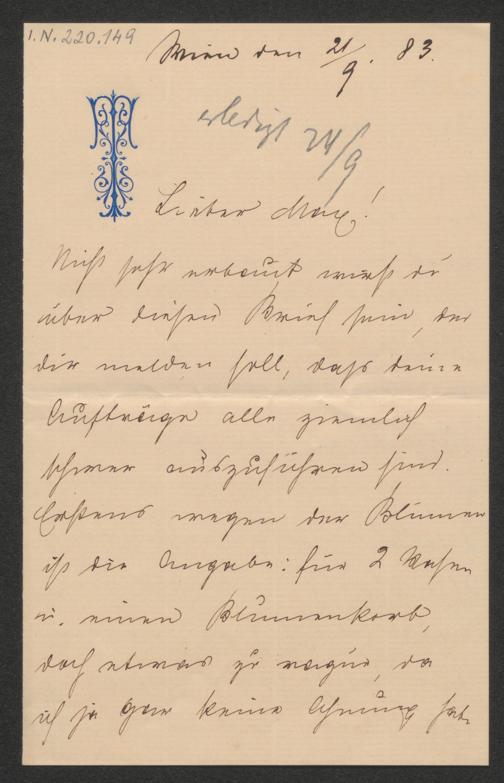 I.N. 220.149
Wien den 21/9. 83.
erledigt 24/9
Lieber Max!
Nicht sehr erbaut wirst du
über diesen Brief sein, der
dir melden soll, daſs deine
Aufträge alle ziemlich
schwer auszuführen sind.
Erstens wegen der Blumen
ist die Angabe: für 2 Vasen
u. einen Blumenkorb,
doch etwas zu vague, da
ich ja gar keine Ahnung habe